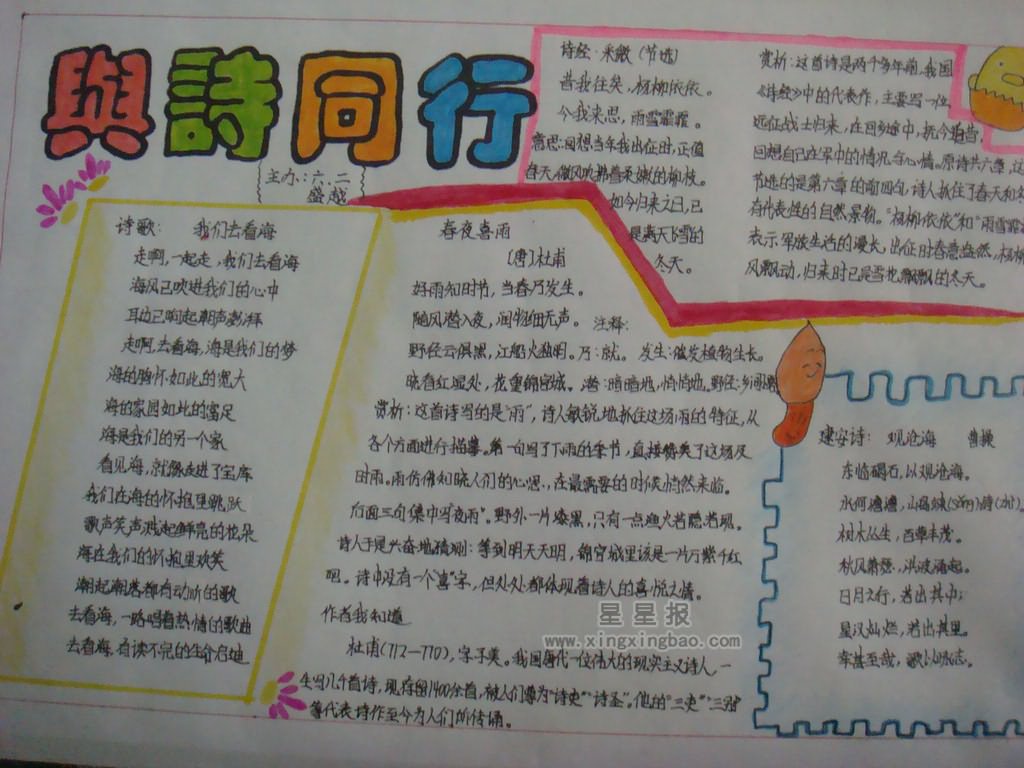 與詩同行
主办:六.二
盛越
诗歌: 我们去看海
走啊,一起走,我们去看海
海风已吹进我们的心中
耳边已响起潮声澎湃
走啊,去看海,海是我们的梦
海的胸怀如此的宽大
海的家园如此的富足
海是我们的另一个家
看见海,就像走进了宝库
我们在海的怀抱里跳跃
歌声笑声激起鲜亮的花朵
海在我们的怀抱里欢笑
潮起潮落都有动听的歌
去看海,一路唱着热情的歌曲
去看海,有读不完的生命启迪
春夜喜雨
[唐]杜甫
好雨知时节,当春乃发生。
随风潜入夜,润物细无声。 注释:
野径云俱黑,江船火独明。乃:就。 发生:催发植物生长。
晓看红湿处,花重锦官城。潜:暗暗地,悄悄地。野径:乡间
赏析:这首诗写的是“雨”,诗人敏锐地抓住这场雨的特征,从
各个方面进行描摹。第一句写了下雨的季节,直接赞美了这场及
时雨。雨仿佛知晓人们的心思,在最需要的时候悄然来临。
后面三句集中写夜雨”。野外一片漆黑,只有一点渔火若隐若现。
诗人于是兴奋地猜测:等到明天天明,锦官城里该是一片万紫千红
吧。诗中没有一个“喜”字,但处处都体现着诗人的喜悦之情。
作者我知道
杜甫(712—770),字子美。我国唐代一位伟大的现实主义诗人,一
生写几千首诗,现存留1400余首,被人们尊为“诗史”“诗圣”。他的“三吏”“三别”
等代表诗作至今为人们所传诵。
诗经·采薇(节选)
昔我往矣,杨柳依依。
今我来思,雨雪霏霏。
意思:回想当年我出征时,正值
春天,微风吹拂着柔嫩的柳枝。
如今归来之日,已
是满天飞雪的
冬天。
赏析:这首诗是两千多年前,我国
《诗经》中的代表作,主要写一位
远征战士归来,在回乡途中,抚今追昔,
回想自己在军中的情况与心情。原诗共六章,这
节选的是第六章的前四句,诗人抓住了春天和冬
有代表性的自然景物。“杨柳依依”和“雨雪霏霏
表示军旅生活的漫长,出征时春意盎然,杨柳
风飘动,归来时已是雪花飘飘的冬天。
建安诗: 观沧海 曹操
东临碣石,以观沧海。
水何澹澹,山岛竦(sǒng)峙(zhì)。
树木丛生,百草丰茂。
秋风萧瑟,洪波涌起。
日月之行,若出其中;
星汉灿烂,若出其里。
幸甚至哉,歌以咏志。
星星报
www.xingxingbao.com